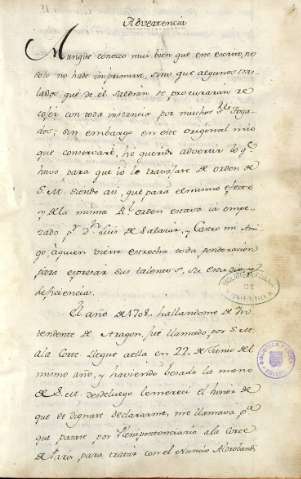 Advertencia
Aunque conozco mui bien que este escrito, no
solo no hade imprimirse, sino que algunos tras
lados que de el saldràn se procuraran re
cojer con toda instancia por muchos
dos; sin embargo en este original mio
que conservarè, he querido advertir lo q.e
huvo para que io lo travajase de orden de
S. M. siendo asi, que para el mismo efecto
y de la misma R.l orden estava ia empe
zado p.r D.n Luis de Salazar, y Castro mi Ami
go àquien viene estrecha toda ponderacion
para expresar sus talentos su erudicion y
suficiencia.
El año de 1708. hallandome de In
tendente de Aragon, fui llamado, por S. M.
àla Corte llegue aella en 22. de Junio del
mismo año, y haviendo besado la mano
de S. M. desdeluego lemereci el honor de
que se dignase declararme, me llamava p.a
que pasase por Plenipotenciario àla Corte
de Paris para tratar con el Nuncio Aldobandi